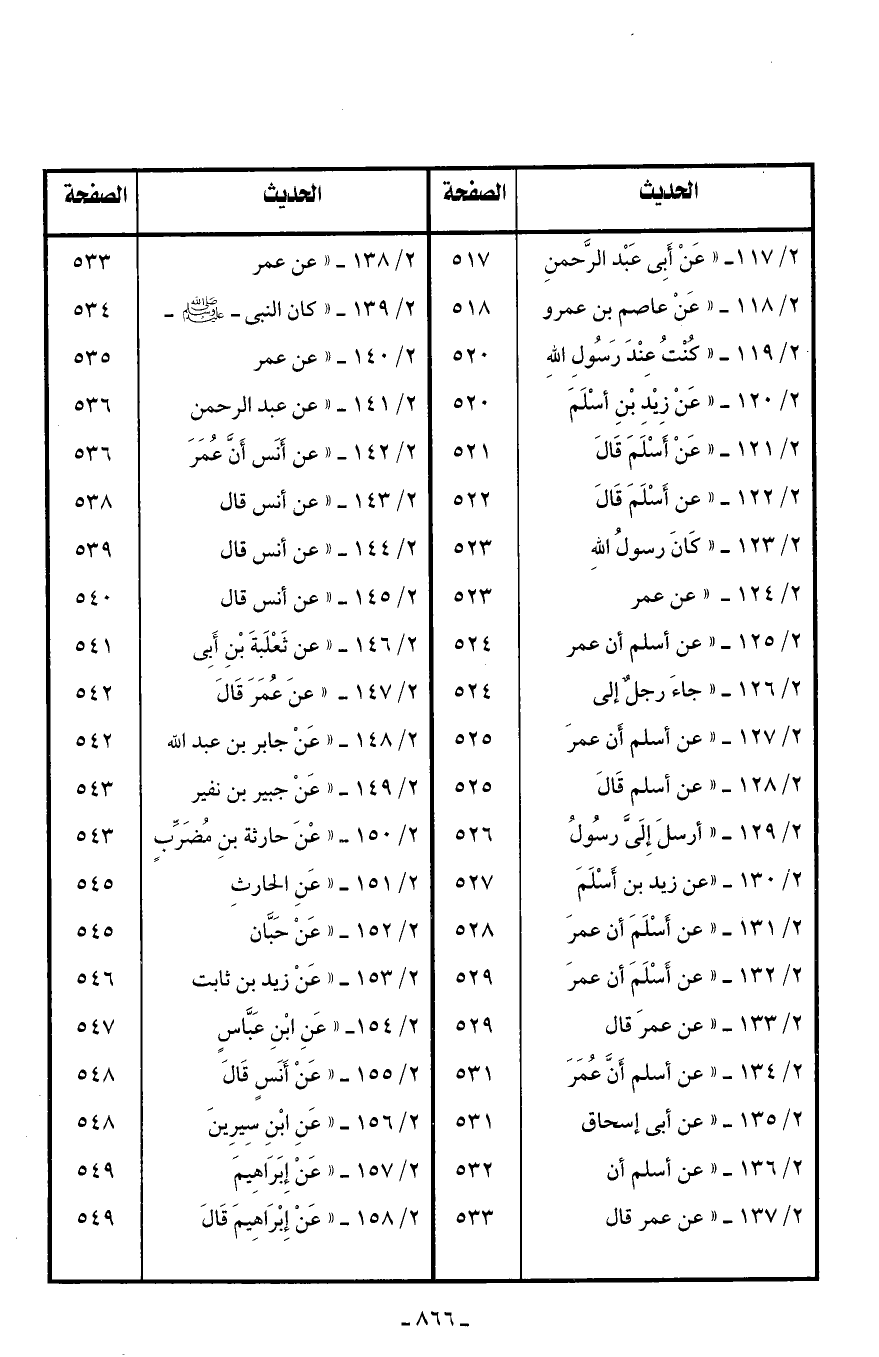 الحديث الصفحة الحديث الصفحة
٢/ ١١٧ـ « عَنْ أَبِى عَبْد الرَّحمنِ ٥١٧ ٢/ ١٣٨ ـ « عن عمر ٥٣٣
٢/ ١١٨ ـ « عَنْ عاصم بن عمرو ٥١٨ ٢/ ١٣٩ ـ « كان النبى ـ ﷺ ـ ٥٣٤
٢/ ١١٩ ـ « كُنْتُ عِنْدَ رَسُولِ اللهِ ٥٢٠ ٢/ ١٤٠ ـ « عن عمر ٥٣٥
٢/ ١٢٠ ـ « عَنْ زِيْدِ بْنِ أسْلَمَ ٥٢٠ ٢/ ١٤١ ـ « عن عبد الرحمن ٥٣٦
٢/ ١٢١ ـ « عَنْ أَسْلَمَ قَالَ ٥٢١ ٢/ ١٤٢ ـ « عن أَنَس أَنَّ عُمَرَ ٥٣٦
٢/ ١٢٢ ـ « عن أَسْلَمَ قَالَ ٥٢٢ ٢/ ١٤٣ ـ « عن أنس قال ٥٣٨
٢/ ١٢٣ ـ « كَانَ رسولُ اللهِ ٥٢٣ ٢/ ١٤٤ ـ « عن أنس قال ٥٣٩
٢/ ١٢٤ ـ « عن عمر ٥٢٣ ٢/ ١٤٥ ـ « عن أنس قال ٥٤٠
٢/ ١٢٥ ـ « عن أسلم أن عمر ٥٢٤ ٢/ ١٤٦ ـ « عن ثَعْلَبَةَ بْنِ أَبِى ٥٤١
٢/ ١٢٦ ـ « جاءَ رجلٌ إلى ٥٢٤ ٢/ ١٤٧ ـ « عنَ عُمَرَ قَالَ ٥٤٢
٢/ ١٢٧ ـ « عن أسلم أَن عمرَ ٥٢٥ ٢/ ١٤٨ ـ « عَنْ جابر بن عبد الله ٥٤٢
٢/ ١٢٨ ـ « عن أسلم قَالَ ٥٢٥ ٢/ ١٤٩ ـ « عَنْ جبير بن نفير ٥٤٣
٢/ ١٢٩ ـ « أرسلَ إِلَىَّ رسُولُ ٥٢٦ ٢/ ١٥٠ ـ « عْنَ حارثة بنِ مُضَرِّبٍ ٥٤٣
٢/ ١٣٠ ـ «عن زيد بن أَسْلَمَ ٥٢٧ ٢/ ١٥١ ـ « عَنِ الحارثِ ٥٤٥
٢/ ١٣١ ـ « عن أَسْلَمَ أن عمرَ ٥٢٨ ٢/ ١٥٢ ـ « عَنْ حَبَّان ٥٤٥
٢/ ١٣٢ ـ « عن أَسْلَمَ أن عمرَ ٥٢٩ ٢/ ١٥٣ ـ « عَنْ زيد بن ثابت ٥٤٦
٢/ ١٣٣ ـ « عن عمرَ قال ٥٢٩ ٢/ ١٥٤ـ « عَنِ ابْنِ عَبَّاسٍ ٥٤٧
٢/ ١٣٤ ـ « عن أسلم أَنَّ عُمَرَ ٥٣١ ٢/ ١٥٥ ـ « عَنْ أَنَسٍ قَالَ ٥٤٨
٢/ ١٣٥ ـ « عن أبى إسحاق ٥٣١ ٢/ ١٥٦ ـ « عَنِ ابْنِ سِيرِينَ ٥٤٨
٢/ ١٣٦ ـ « عن أسلم أن ٥٣٢ ٢/ ١٥٧ ـ « عَنْ إِبَرَاهِيمَ ٥٤٩
٢/ ١٣٧ ـ « عن عمر قال ٥٣٣ ٢/ ١٥٨ ـ « عَنْ إِبْرَاهِيمَ قَالَ ٥٤٩
ـ ٨٦٦ ـ